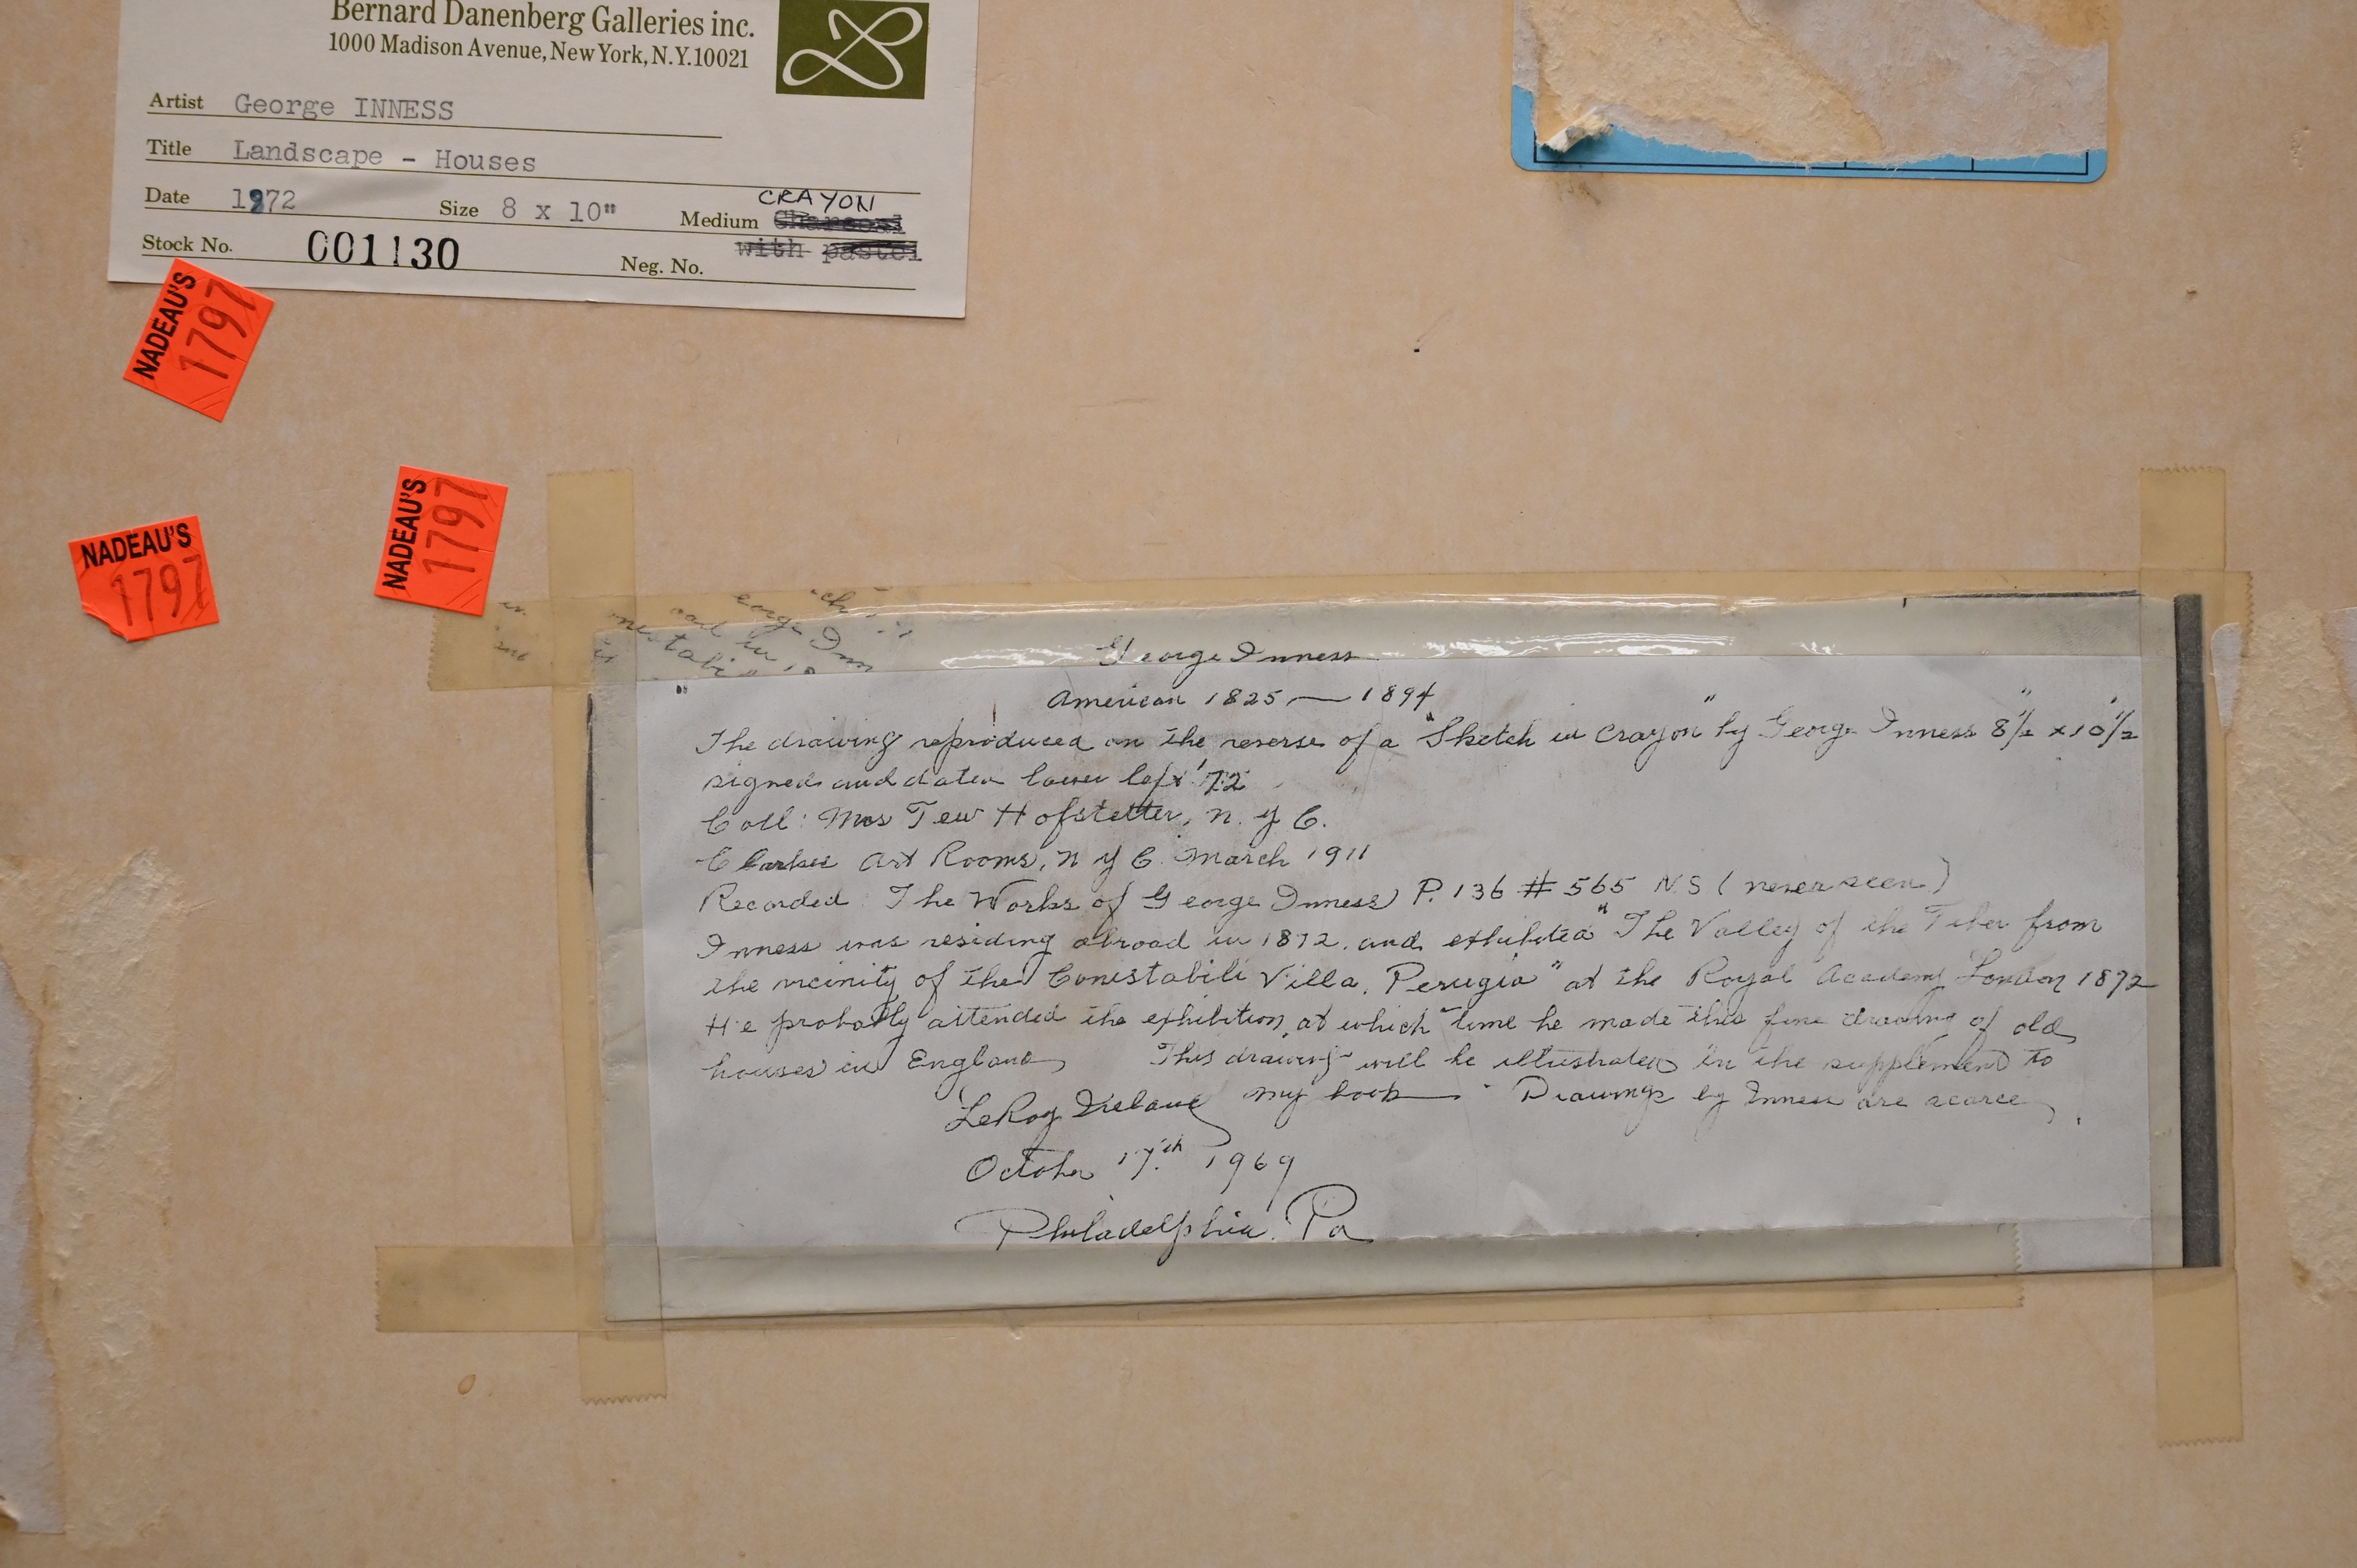 Bernard Danenberg Galleries inc.
1000 Madison Avenue, New York, N.Y. 10021
Artist George INNESS
Title Landscape - Houses
Date 1872 Size 8 x 10" Medium CRAYON Charcoal
with pastel
Stock No. 001130 Neg. No.
NADEAU'S
1797
NADEAU'S
1797
NADEAU'S
1797
George Inness
American 1825 — 1894
The drawing reproduced on the reverse of a "Sketch in Crayon" by George Inness 8 1/2" x 10 1/2"
signed and dated lower left '72
Coll: Mrs Tew Hofstetter, N. Y C.
Clarkes Art Rooms, N Y C. March 1911
Recorded The Works of George Inness P. 136 # 565 N.S (never seen)
Inness was residing abroad in 1872. and exhibited "The Valley of the Tiber from
the vicinity of the Conestabili Villa, Perugia" at the Royal Academy London 1872
He probably attended the exhibition, at which time he made this fine drawing of old
houses in England This drawing will be illustrated in the supplement to
my book — Drawings by Inness are scarce
LeRoy Ireland
October 17th 1969
Philadelphia. Pa